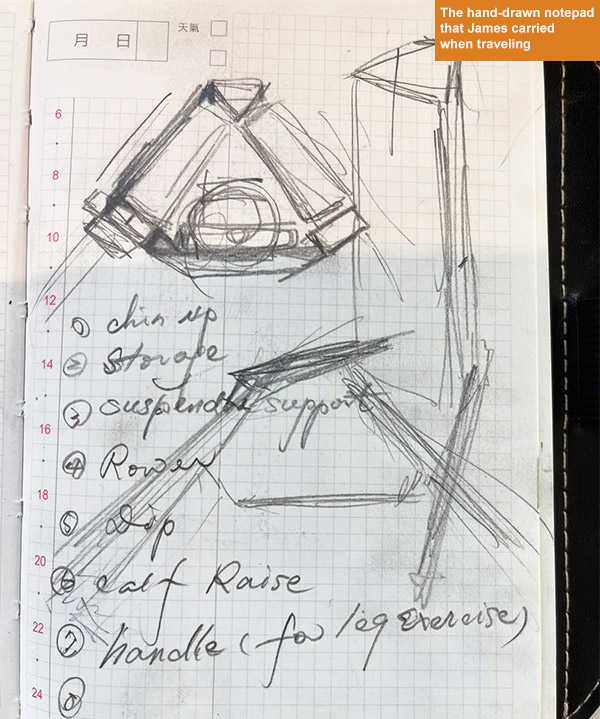 The hand-drawn notepad
that James carried
when traveling
月 日
天氣
6
8
10
12
① chin up
14
② Storage
③ suspender support
16
④ Rower
18
⑤ Dip
20
⑥ calf Raise
22
⑦ handle (for leg Exercise)
24